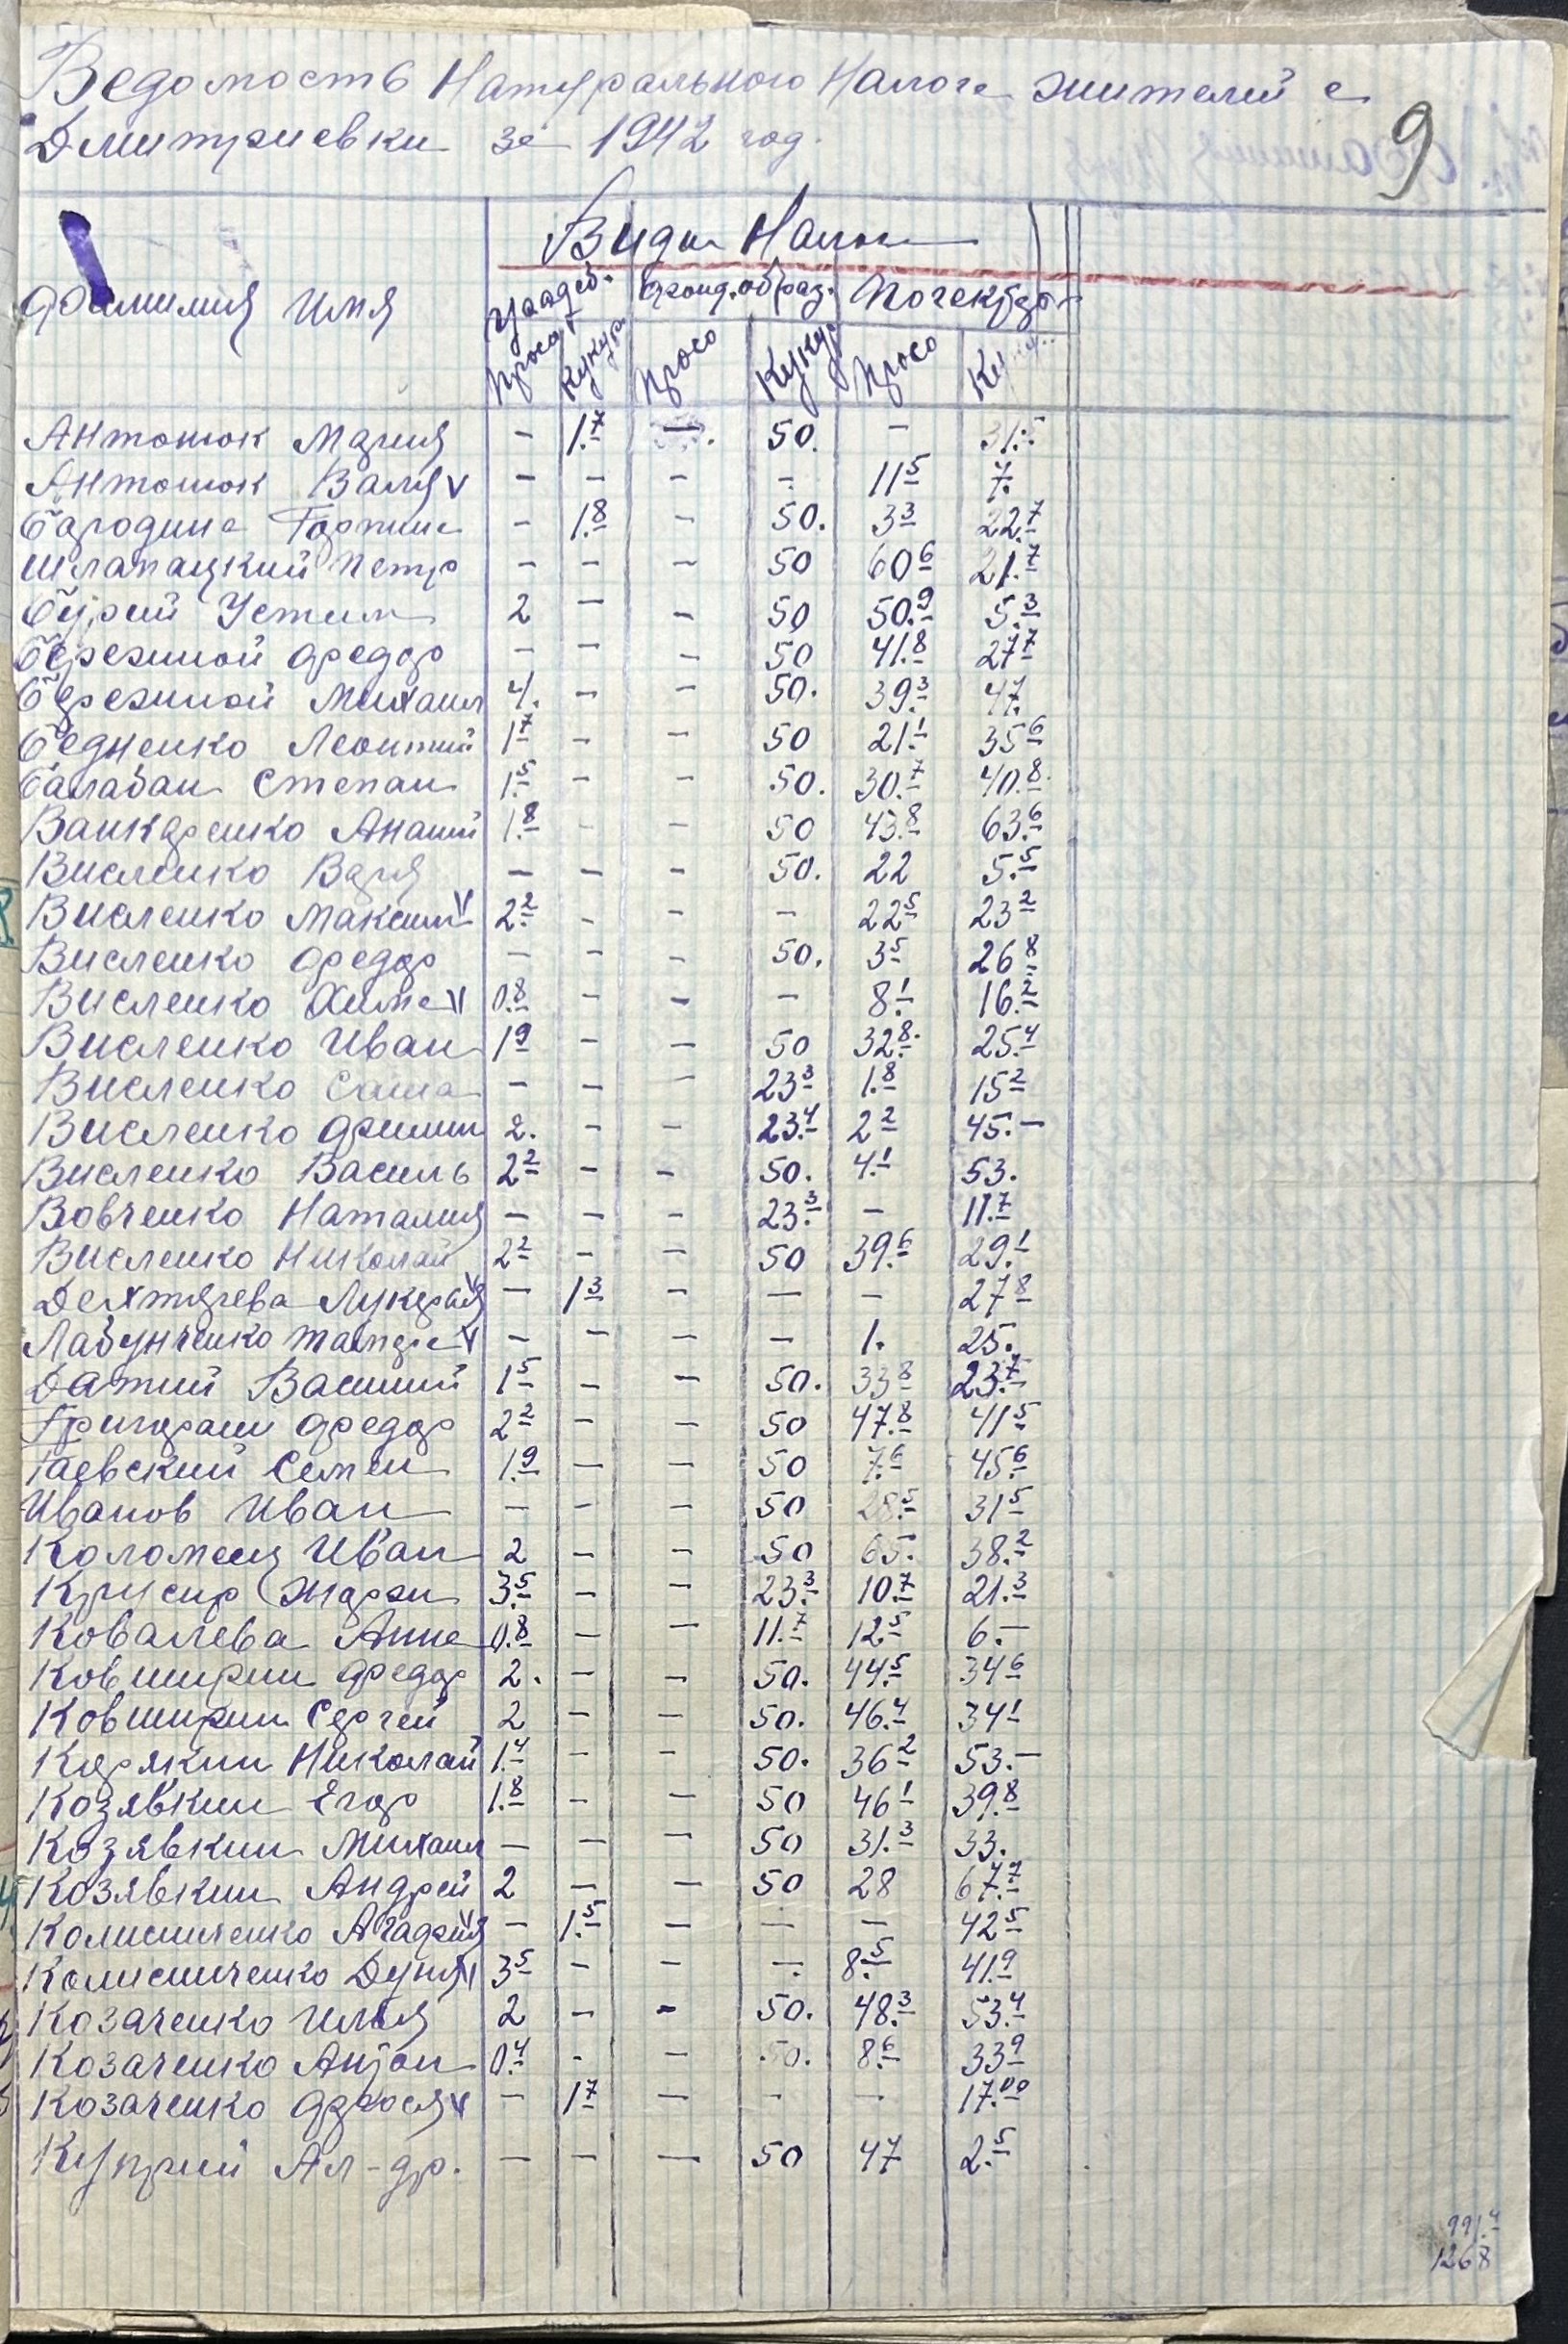 Ведомость Натурального Налога жителей с
Дмитриевки за 1942 год.
9
Виды Налога
Фамилия Имя
Усадеб. фонд. обраб. По гектарно
Просо Кукур. Просо Кукур. Просо Кукур.
Антонюк Мария - 1.7 - 50. - 31.5
Антонюк Валя v - - - - 11 5 7.
Бародина Горпина - 1.8 - 50. 3 3 22.7
Шлапацкий Петр - - - 50 60 6 21.7
Бурий Устим 2 - - 50 50.9 5.3
Бережной Федор - - - 50 41.8 27 7
Бережной Михаил 4. - - 50. 39.3 47.
Бедненко Леонтий 1 7 - - 50 21.1 35 6
Балабан Степан 1.5 - - 50. 30.7 40.8
Ванжаренко Ананий 1.8 - - 50 43.8 63.6
Висленко Варя - - - 50. 22 5.5
Висленко Максим v 2.2 - - - 22 5 23 2
Висленко Федор - - - 50. 3 5 26 8
Висленко Хима v 0.8 - - - 8.1 16.2
Висленко Иван 1 9 - - 50 32.8 25.4
Висленко Саша - - - 23 3 1.8 15 2
Висленко Филип 2. - - 23.4 2 2 45.-
Висленко Василь 2 2 - - 50. 4.1 53.
Вовченко Наталия - - - 23.3 - 11.7
Висленко Николай 2 2 - - 50 39.6 29.1
Дехтярева Лукерия v - 1 3 - - - 27 8
Лабунченко v - - - - 1. 25.
Датий Василий 1 5 - - 50. 33 8 23.7
Григораш Федор 2 2 - - 50 47.8 41 5
Гаевский Семен 1.9 - - 50 7.6 45.6
Иванов Иван - - - 50 28.5 31 5
Коломеец Иван 2 - - 50 65. 38.2
3.5 - - 23.3 10.7 21.3
Ковалева Анна 0.8 - - 11.7 12 5 6.-
Ковширин Федор 2. - - 50. 44.5 34 6
Ковширин Сергей 2 - - 50. 46.4 34 1
Карякин Николай 1.4 - - 50. 36 2 53.-
Козявкин Егор 1.8 - - 50 46 1 39.8
Козявкин Михаил - - - 50 31.3 33.
Козявкин Андрей 2 - - 50 28 67.7
Колисниченко Агафия v - 1.5 - - - 42 5
Колисниченко Дуня v 3 5 - - - 8.5 41.9
Козаченко Илья 2 - - 50. 48.3 53.4
Козаченко Антон 0.4 - - 50. 8.6 33 9
Козаченко Фрося v - 1 7 - - - 17.00
Куприй Ал-др. - - - 50 47 2.5
991.4
1268